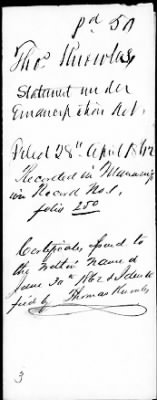 pd 50
Thos. Knowles,
Statement under
Emancipation Act.
Filed 28th April 1862
Recorded in Manumission
Record No. 1,
folio 250
Certificates issued to
the within named
June 30th 1862 & Identi
fied by Thomas Knowles
3